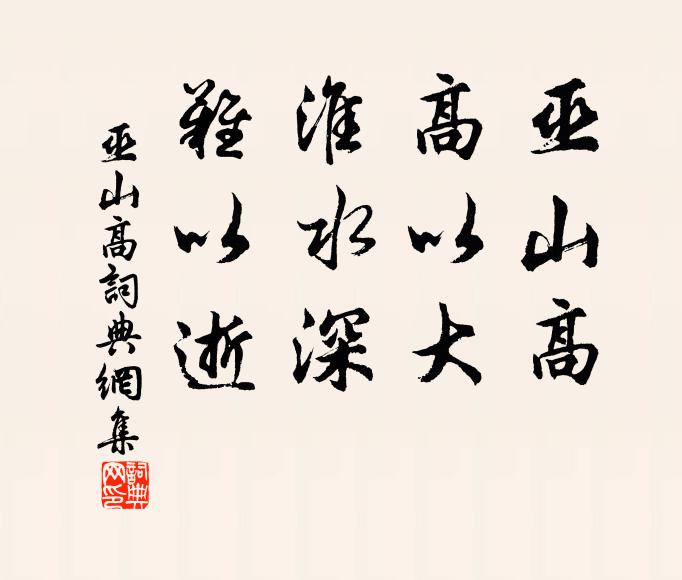 巫山高
高以大
淮水深
難以逝
巫山高詞典網集
詞典
网印